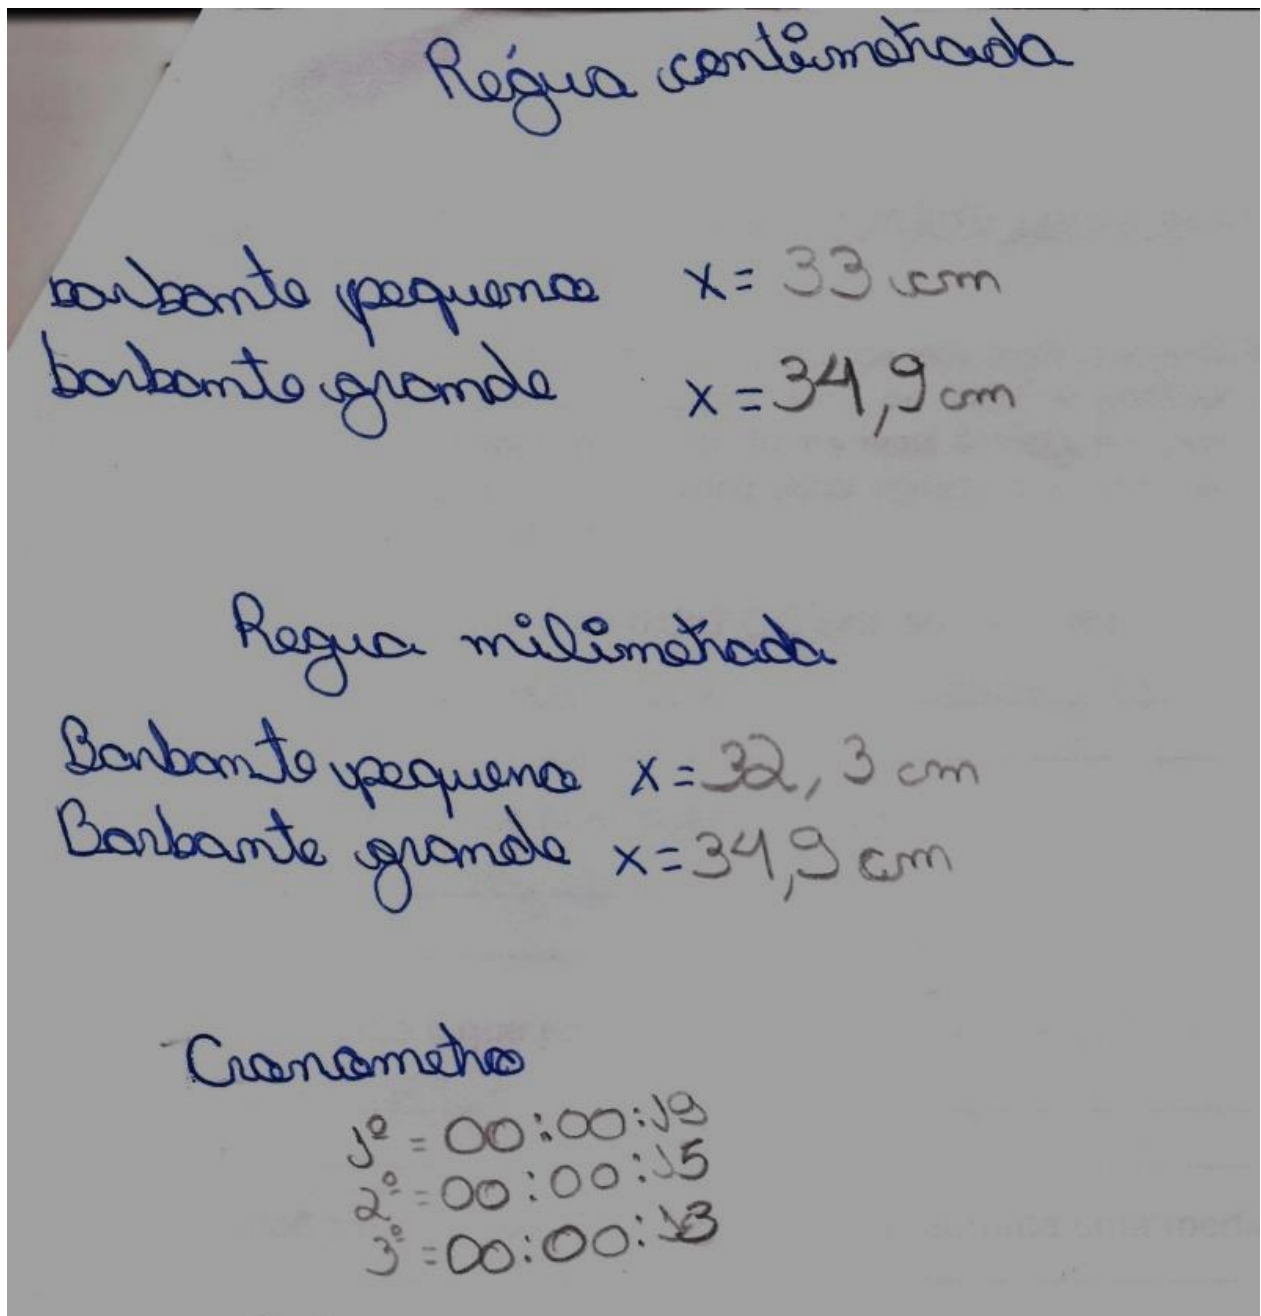 Régua centimetrada
barbante pequeno x= 33 cm
barbante grande x= 34,9 cm
Regua milimetrada
Barbante pequeno x= 32,3 cm
Barbante grande x= 34,9 cm
Cronometro
1º = 00:00:19
2º = 00:00:15
3º = 00:00:13